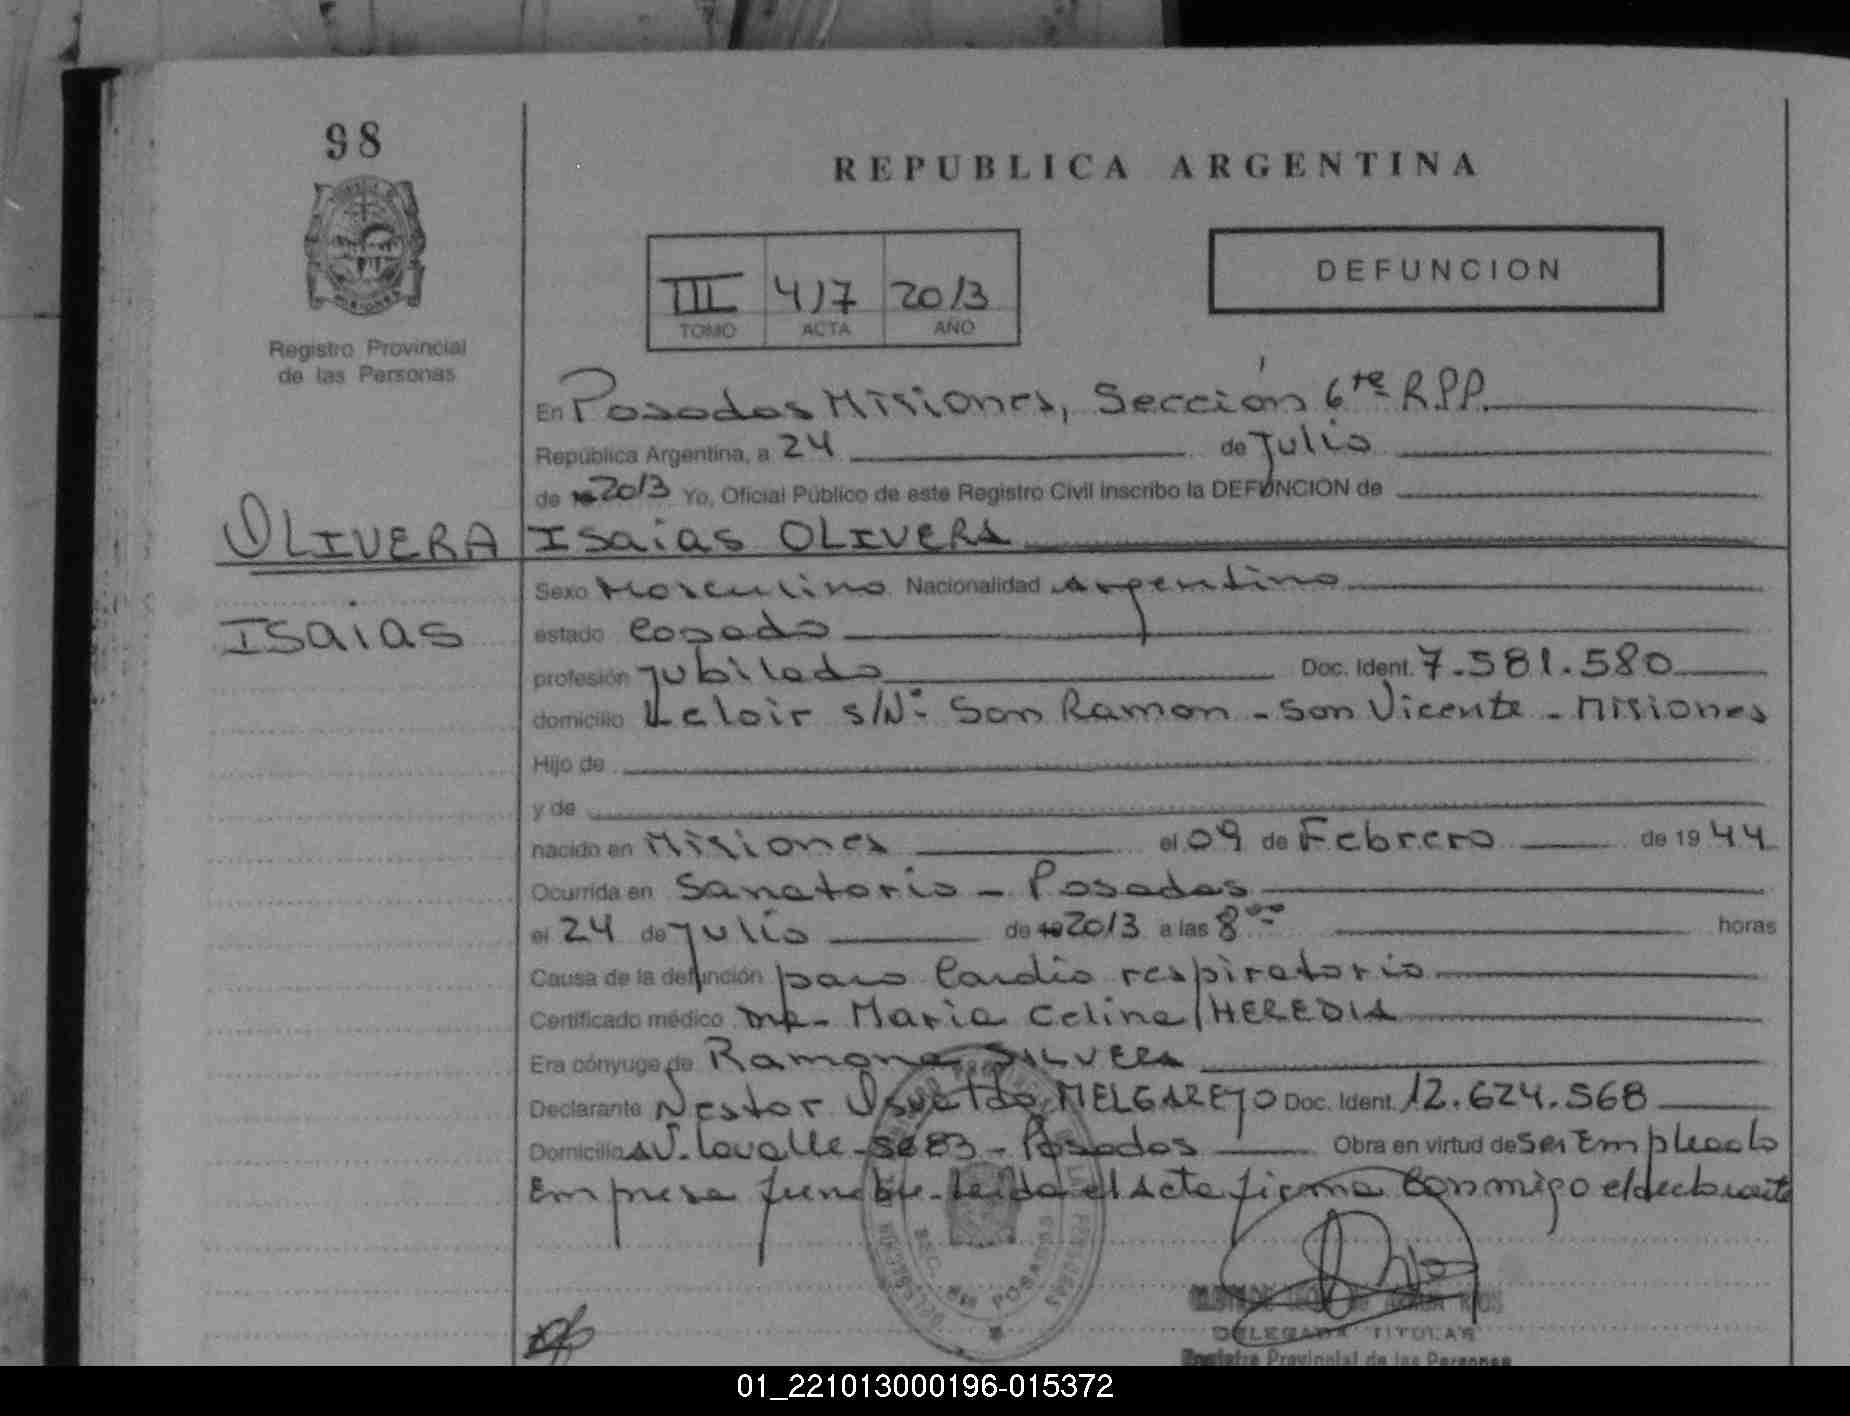 98
REPUBLICA ARGENTINA
DEFUNCION
III 417 2013
TOMO ACTA AÑO
Registro Provincial
de las Personas
En Posadas Misiones, Sección 6ta R.P.P.
República Argentina, a 24 de Julio
de 19 2013 Yo, Oficial Público de este Registro Civil inscribo la DEFUNCION de
OLIVERA
ISAIAS
Isaias OLIVERA
Sexo Masculino Nacionalidad Argentino
estado Casado
profesión Jubilado Doc. Ident. 7.581.580
domicilio Leloir s/Nº San Ramon - San Vicente - Misiones
Hijo de
y de
nacido en Misiones el 09 de Febrero de 1944
Ocurrida en Sanatorio - Posadas
el 24 de Julio de 19 2013 a las 8.00 horas
Causa de la defunción paro Cardio respiratorio
Certificado médico Maria Celina HEREDIA
Era cónyuge de Ramona SILVERA
Declarante Nestor Osvaldo MELGAREJO Doc. Ident. 12.624.568
Domicilio AV. Lavalle - - Posadas Obra en virtud de Ser Empleado
Empresa funebre. Leida el Acta firma Conmigo el declarante
SEC. POSADAS
DELEGADA TITULAR
Registro Provincial de las Personas
01_221013000196-015372